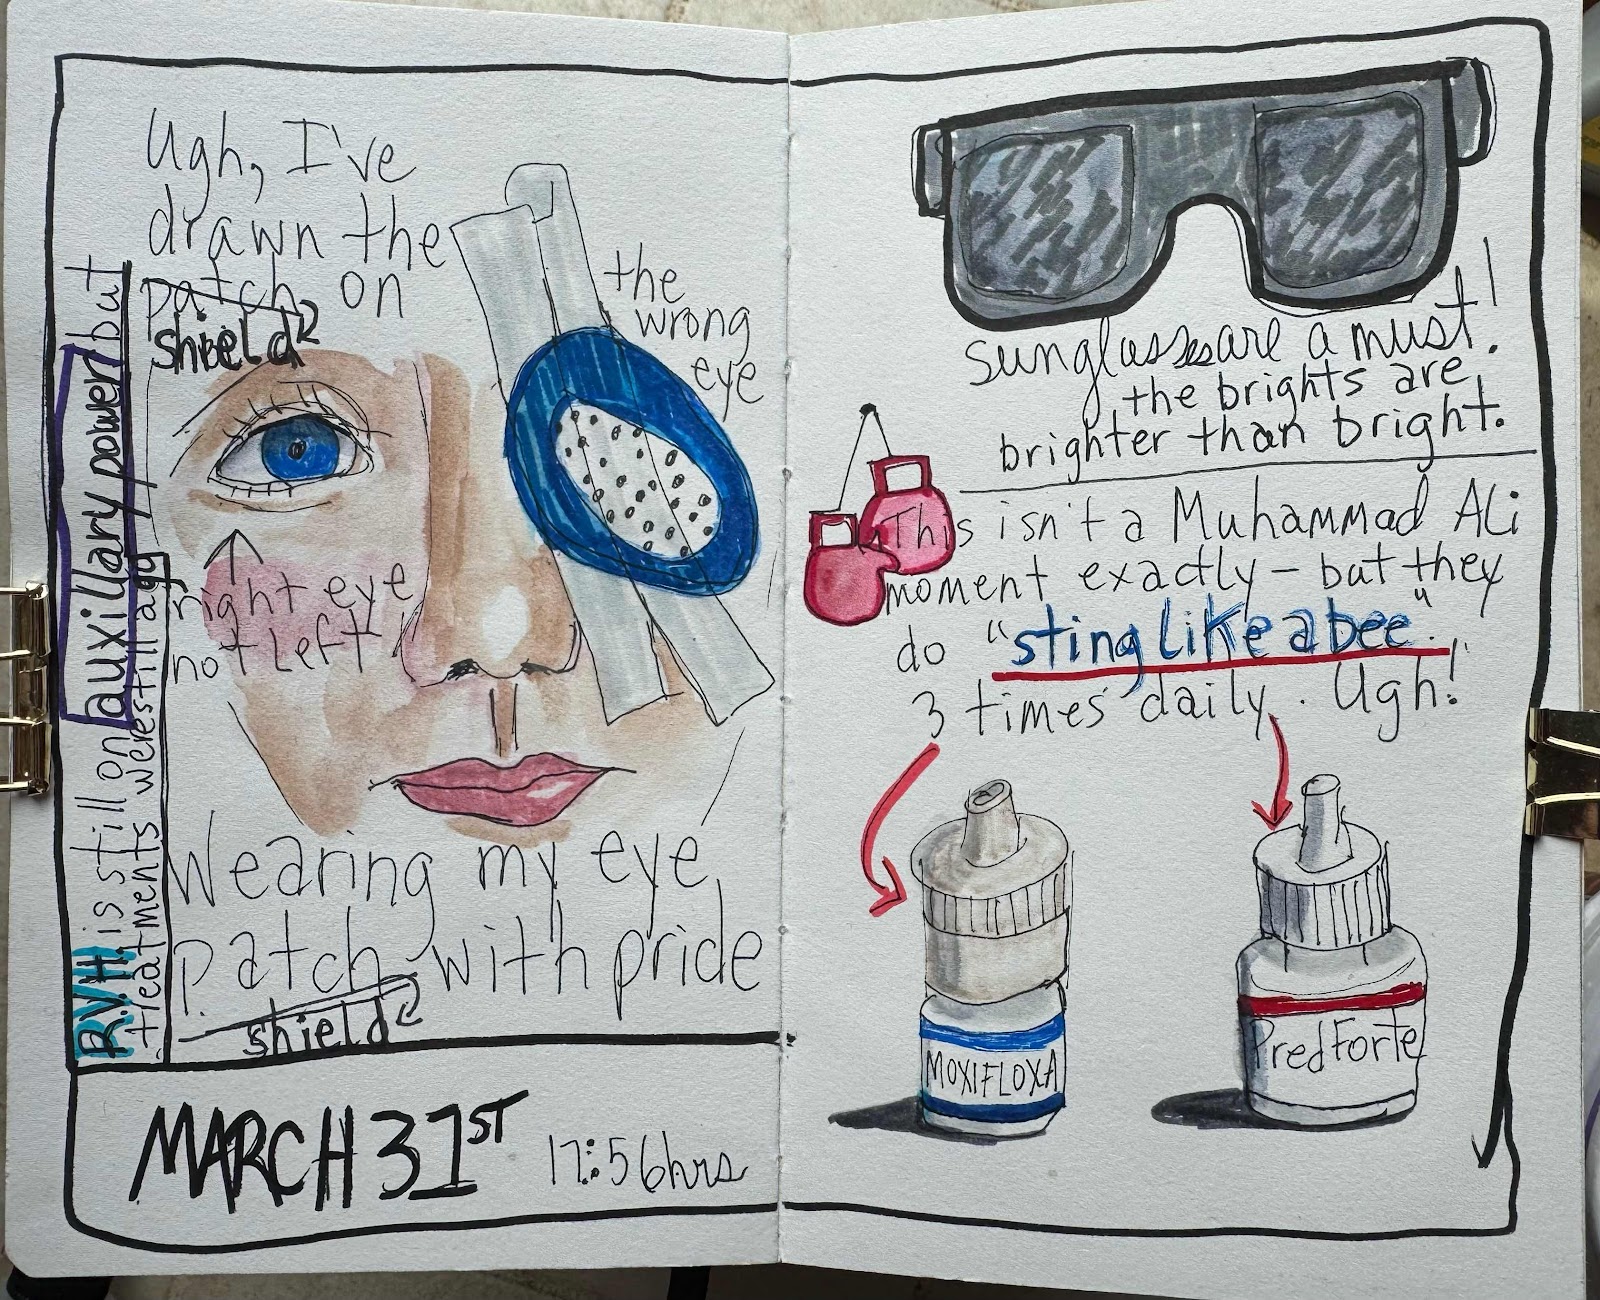 Ugh, I've
drawn the
patch on
shield
the
wrong
eye
right eye
not left
R.V.H. is still on auxillary power but
treatments were still a go
Wearing my eye
patch with pride
shield
MARCH 31ST
17:56hrs
sunglasses are a must!
the brights are
brighter than bright.
This isn't a Muhammad Ali
moment exactly - but they
do "sting like a bee"
3 times daily. Ugh!
MOXIFLOXA
Pred Forte